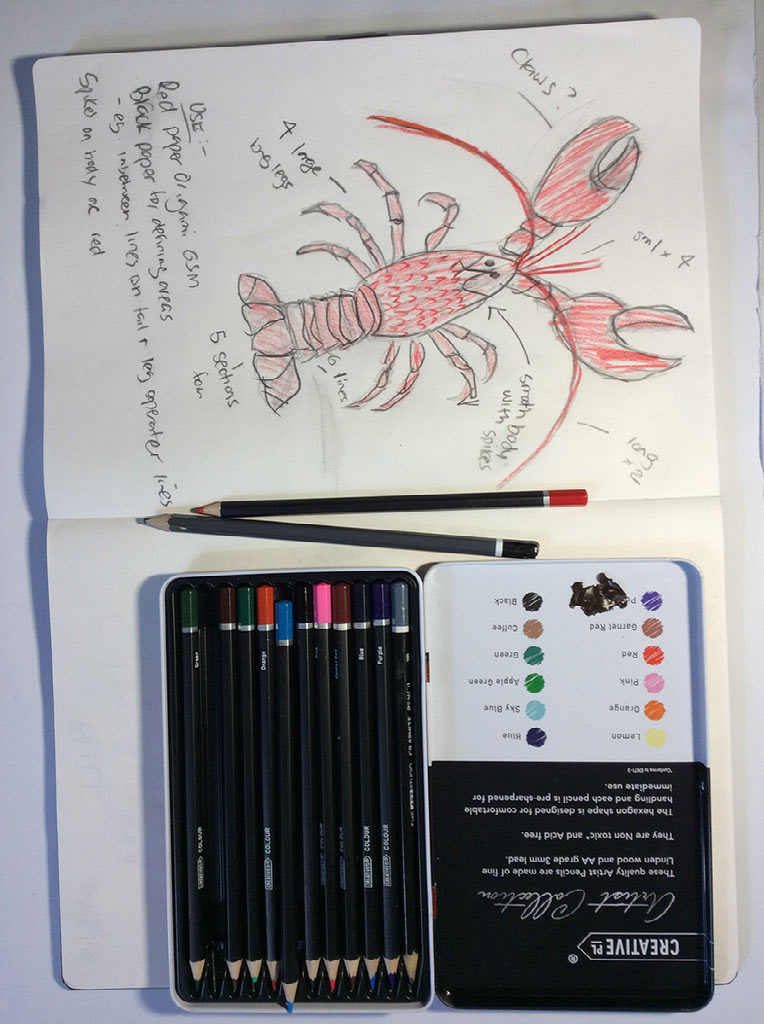 Claws?
4 large
legs
sml x 4
long
x 2
smooth body
with
spikes
6 lines
5 sections
USE :-
Red paper Origami GSM
Black paper for defining areas
- eg. inbetween lines on tail + leg lines
Spikes on body or red
Black
Coffee
Green
Apple Green
Sky Blue
Blue
Garnet Red
Red
Pink
Orange
Lemon
*Conforms to EN71-3
These quality Artist Pencils are made of fine
Linden wood and AA grade 3mm lead.
They are Non toxic* and Acid free.
The hexagon shape is designed for comfortable
handling and each pencil is pre-sharpened for
immediate use.
Artist Collection
CREATIVE PL ®
Green
Orange
Blue
Purple
COLOUR
COLOUR
COLOUR
COLOUR